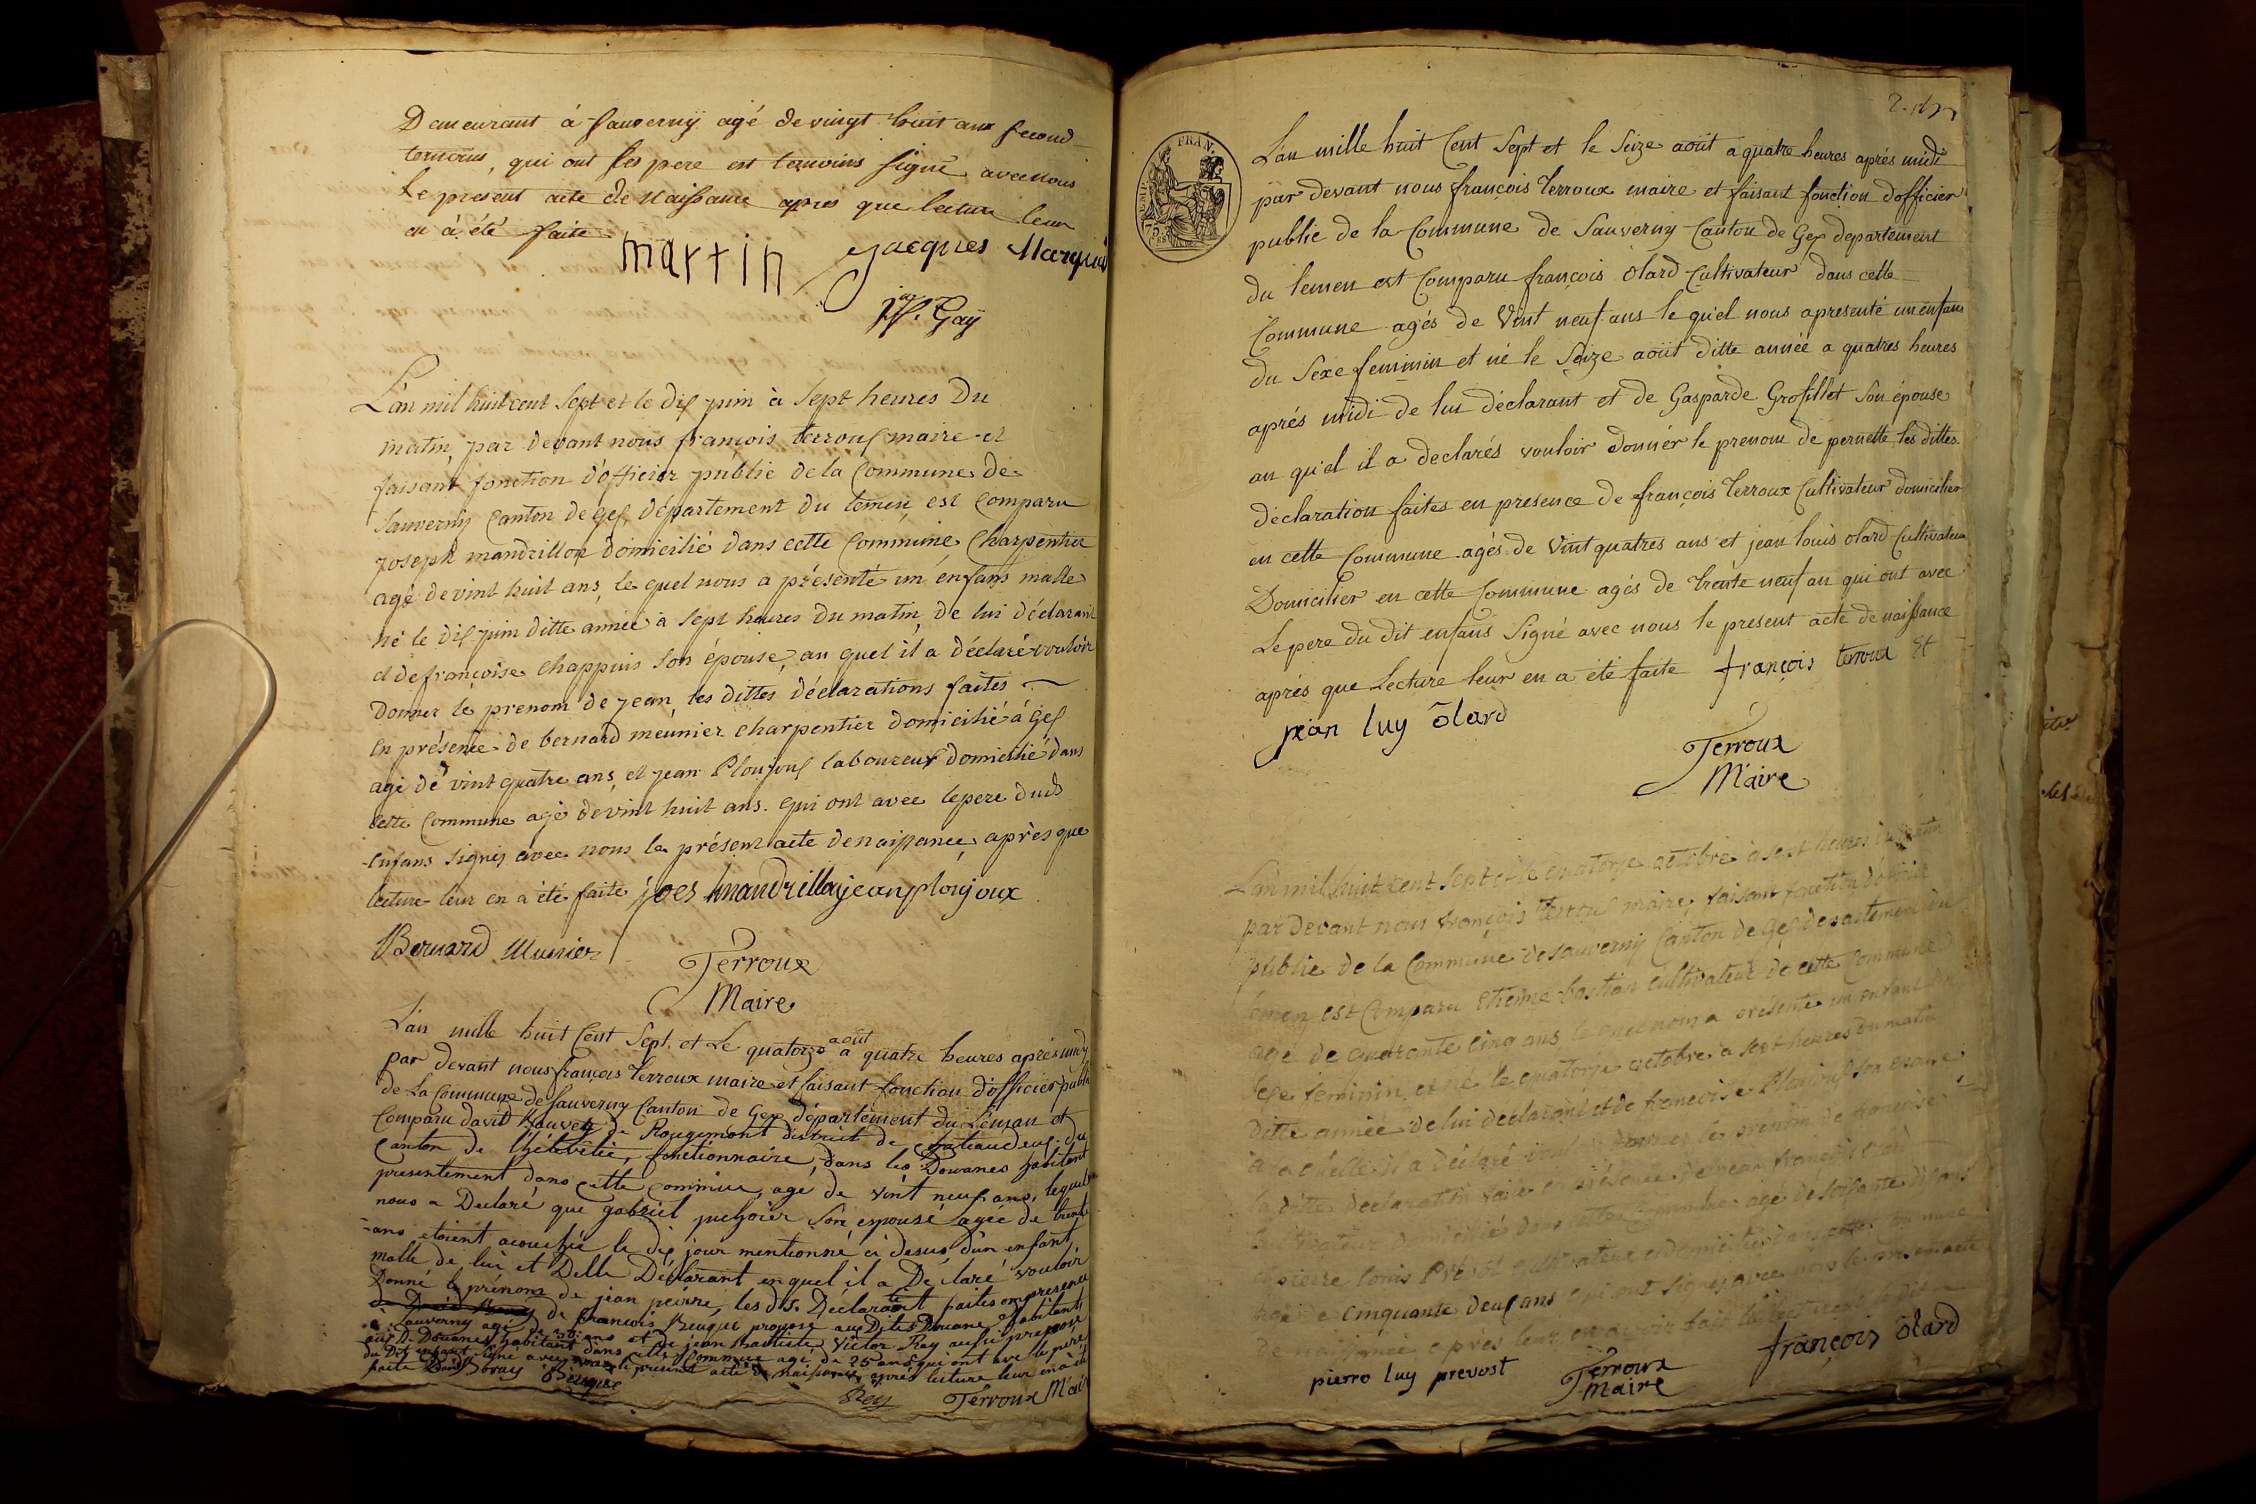 Demeurant á Sauvernÿ agé de vingt huit ans second
temoins, qui ont les pere est temoins signé avec nous
le present acte de Naissance apres que lecture leur
en à été faite
martin Jacques Marquis
Gaÿ
L'an mil huit cent sept et le dix juin à sept heures du
matin, par devant nous françois terroux maire et
faisant fonction d'officier public de la Commune de
Sauverniy Canton de gex, département du lemen, est Comparu
joseph mandrillon domicilié dans cette Commune Charpentier
agé de vint huit ans, le quel nous a présenté un enfans malle
né le dix juin ditte année à sept heures du matin, de lui déclarant
et de françoise Chappuis son épouse, au quel il a déclaré vouloir
donner le prenom de jean, les dittes déclarations faites
en présence de bernard meunier charpentier domicilié à gex
agé de vint quatre ans, et jean Ploujoux laboureur domicilié dans
cette Commune agé de vint huit ans. qui ont avec le pere dudt
enfans signés avec nous le présent acte de naissance, après que
lecture leur en a été faite joes mandrillon jean ploujoux
Bernard Munier
Terroux
Maire
L'an mille huit Cent Sept. et Le quatorze août à quatre heures aprés midy
par devant nous françois Terroux maire et faisant fonction d'officier public
de La Commune de Sauverny Canton de Gex département du Léman et
Comparu david de Rougemont district de chateaudeux du
Canton de l'hélvétie, fonctionnaire, dans les Douanes habitant
presentement dans cette commune, agé de vint neuf ans, lequel
nous a Declaré que gabriel son espouse agée de trente
ans etoient acouchée le dix jour mentionné ci desus d'un enfant
malle de lui et Delle Déclarant, en quel il a Déclaré vouloir
Donné le prénom de jean peirre, les ds. Déclaratint faites en presence
de françois preposé aux Dites Douane habitant
à Sauverny agé de ans et de jean Baptiste Victor Rey aussi preposé
aux D. Douanes habitant dans cette Commune agé de 25 ans, qui ont avec le pere
du Dit enfant signé avec nous le présent acte de naissance, après lecture leur en à été
faite
Rey Terroux Maire
L'an mille huit Cent Sept et le Seize août a quatre heures aprés midi
par devant nous françois Terroux maire et faisant fonction d'officier
public de la Commune de Sauverny Canton de Gex departement
du lemen est Comparu françois Olard Cultivateur dans cette
Commune agés de Vint neuf ans le quel nous apresenté un enfans
du Sexe feminin et né le Seize août ditte année a quatres heures
aprés midi de lui déclarant et de Gasparde Grosillet Son épouse
au quel il a declarés vouloir donnér le prenom de pernette, les dittes
déclaration faites en presence de françois Terroux Cultivateur domicilier
en cette Commune agés de Vint quatres ans et jean louis olard Cultivateur
Domicilier en cette Commune agés de trente neuf an qui ont avec
Le pere du dit enfans Signé avec nous le present acte de naissance
aprés que Lecture leur en a été faite françois terroux
jean luy ôlard
Terroux
Maire
L'an mil huit cent sept et le quatorze octobre à sept heures du matin
par devant nous françois terroux maire, faisant fonction d'officier
public de la Commune de Sauverniy Canton de Gex departement du
lemen est Comparu Etienne bastian cultivateur de cette Commune
agé de quarante cinq ans le quel nous a présenté un enfant du
sexe feminin, et né le quatorze octobre à sept heures du matin
ditte année de lui declarant et de françoise Ploujoux son épouse
à la quelle il a déclaré vouloir donner le prenom de françoise
la ditte declaration faite en présence de jean françois
domicilié dans cette Commune agé de soixante dix ans
et pierre louis Prévost cultivateur domicilié dans cette commune
agé de cinquante deux ans qui ont signés avec nous le présent acte
de naissance après leur en avoir fait lecture
pierro luy prevost Terroux maire françois ôlard